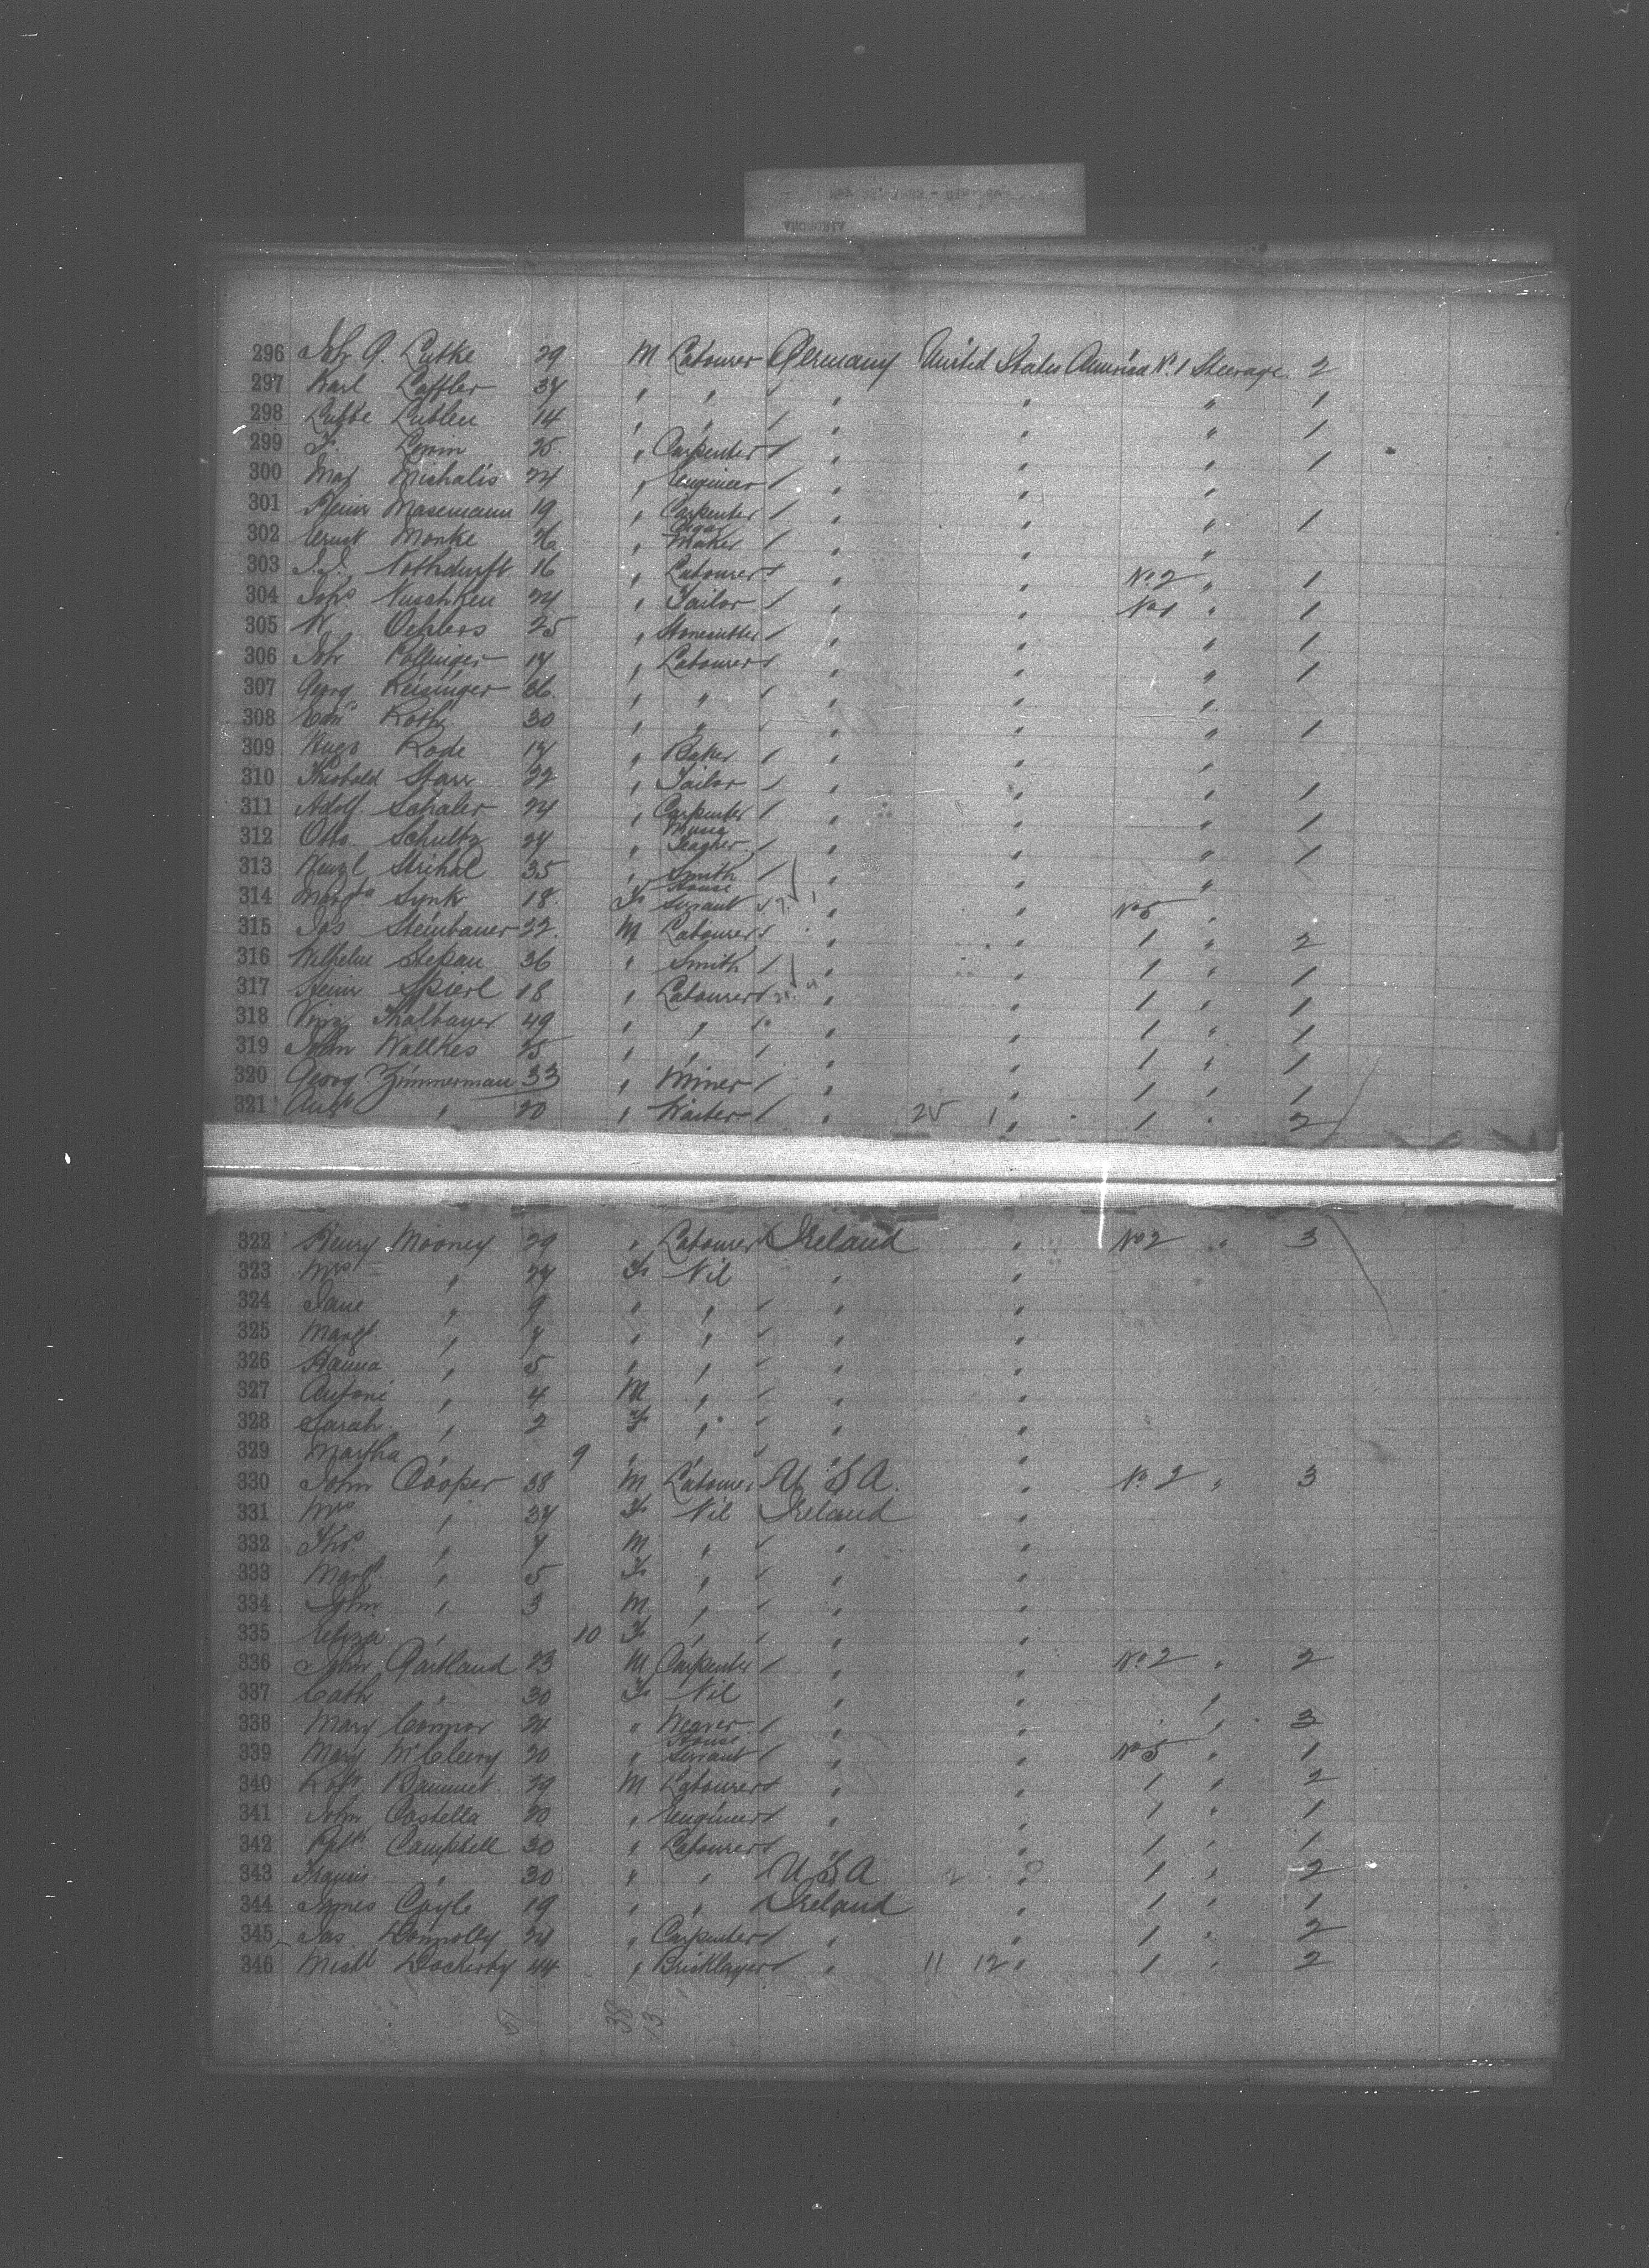 296 Joh G. Lutke 29 M Labourer Germany United States America No. 1 Steerage 2
297 Karl Laffler 37 " " " " " 1
298 Lubbe Lublen 14 " " " " " 1
299 F. Lewin 25 " Carpenter " " " 1
300 Max Michalis 24 " Engineer " " "
301 Heinr Masemann 19 " Carpenter " " " 1
302 Ernst Monke " Cigar Maker " " "
303 Nothdurft 16 " Labourer " " No. 2 " 1
304 Johs Nuschken 24 " Tailor " " No 1 " 1
305 W Oehlers 25 " Stonecutter " " " 1
306 Joh Pollinger 17 " Labourer " " " 1
307 Georg Reisinger 36 " " " " "
308 Roth 30 " " " " " 1
309 Hugo Rode 17 " Baker " " "
310 Theobald Starr 32 " Tailor " " " 1
311 Adolf Schaler 24 " Carpenter " " " 1
312 Otto Schultz 27 " Music Teacher " " " 1
313 Wenzl Strihal 35 " Smith " " "
314 Synk 18 F House Servant " " No 5 "
315 Jos Steinbauer 32 M Labourer " " 1 " 2
316 Wilhelm Stepan 36 " Smith " " 1 " 1
317 Heinr Spierl 18 " Labourer " " 1 " 1
318 Thalbauer 49 " " " " 1 " 1
319 John Wallkes 25 " " " " 1 " 1
320 Georg Zimmerman 33 " Miner " " 1 " 1
321 Augt " 20 " Waiter " " 1 " 2
322 Henry Mooney 29 " Labourer Ireland " No 2 " 3
323 Mrs " 27 F Nil " "
324 Jane " 9 " " " "
325 Margt " 7 " " " "
326 Hanna " 5 " " " "
327 Antoni " 4 M " " "
328 Sarah " 2 F " " "
329 Martha " 9 " " " "
330 John Cooper 38 M Labourer U S A " No. 2 " 3
331 Mrs " 37 F Nil Ireland "
332 Thos " 7 M " " "
333 Margt " 5 F " " "
334 John " 3 M " " "
335 Eliza " 10 F " " "
336 John Gartland 23 M Carpenter " " No 2 " 2
337 Cath " 30 F Nil " " "
338 Mary Connor 24 " Weaver " " " 3
339 Mary McCleery 20 " House Servant " " No 5 " 1
340 Robt 29 M Labourer " " 1 " 2
341 John Costella 20 " Engineer " " 1 " 1
342 Campbell 30 " Labourer " " 1 " 1
343 Francis " 30 " " U S A " 1 " 2
344 James Coyle 19 " " Ireland " 1 " 1
345 Jas. Donnolly 24 " Carpenter " " 1 " 2
346 Michl Dockerty 44 " Bricklayer " 11 12 " 1 " 2
38 13